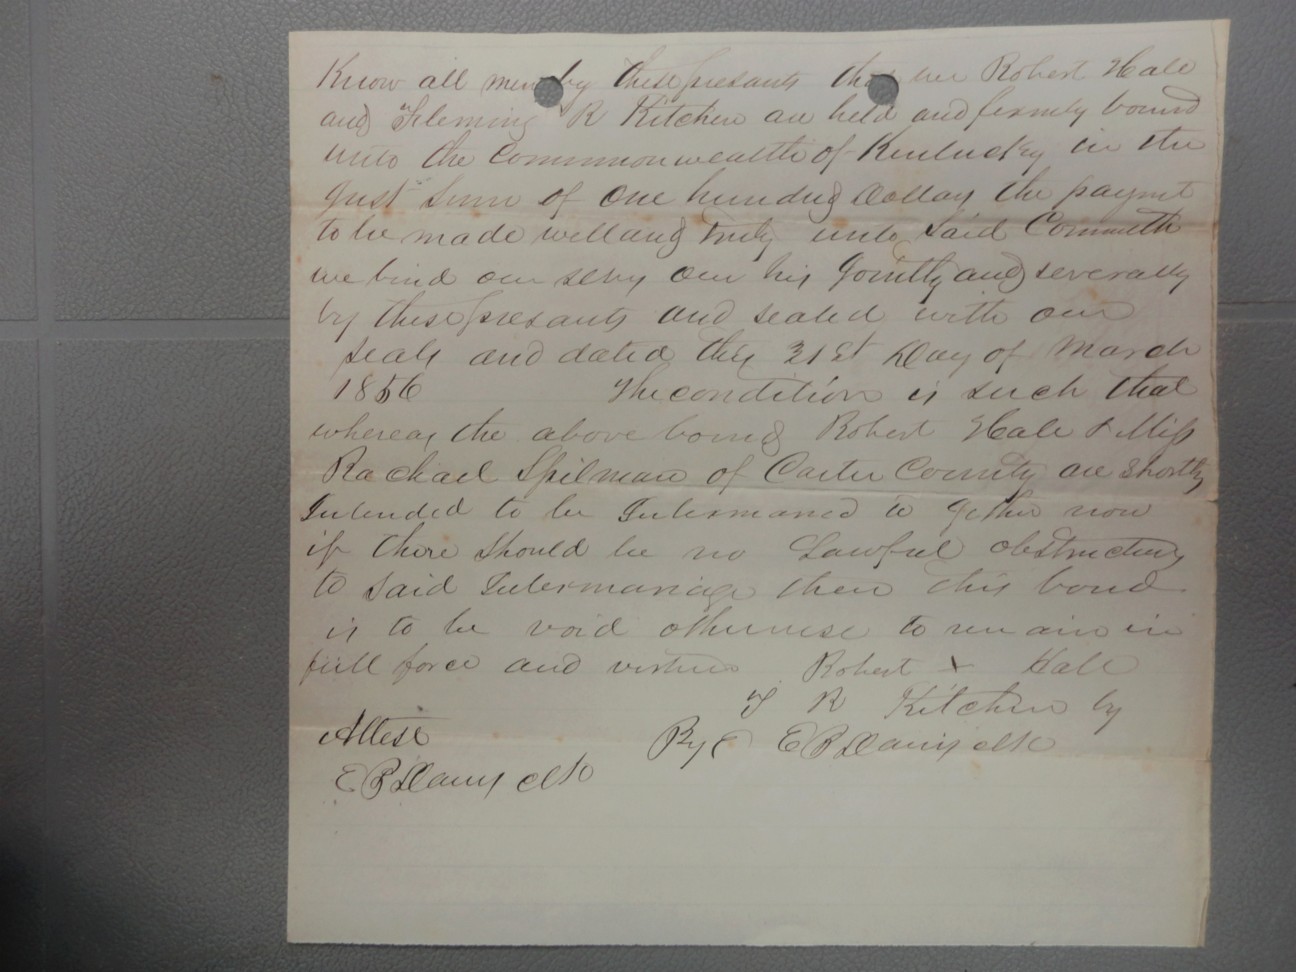 Know all men by these presants that we Robert Hale
and Fleming R Kitchen are held and firmly bound
unto the Commonwealth of Kentucky in the
Just Sum of One hundred Dollars the paymt
to be made well and truly unto Said Commth
we bind our selvs our hirs Jointly and severally
by these presants and sealed with our
seals and dated this 31st Day of March
1856 The condition is such that
whereas the above bound Robert Hale & Miss
Rachael Spilman of Carter County are shortly
Intended to be Intermaried to gether now
if there should be no Lawful obstructions
to said Intermariage then this bond
is to be void otherwise to remain in
full force and virtue Robert x Hale
F R Kitchen by
Attest By E B Davis clk
E B Davis clk